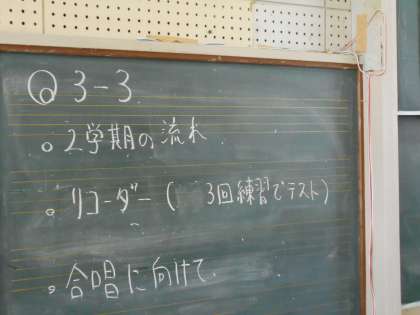 ◎ 3-3
○ 2学期の流れ
○ リコーダー( 3回練習でテスト)
○ 合唱に向けて